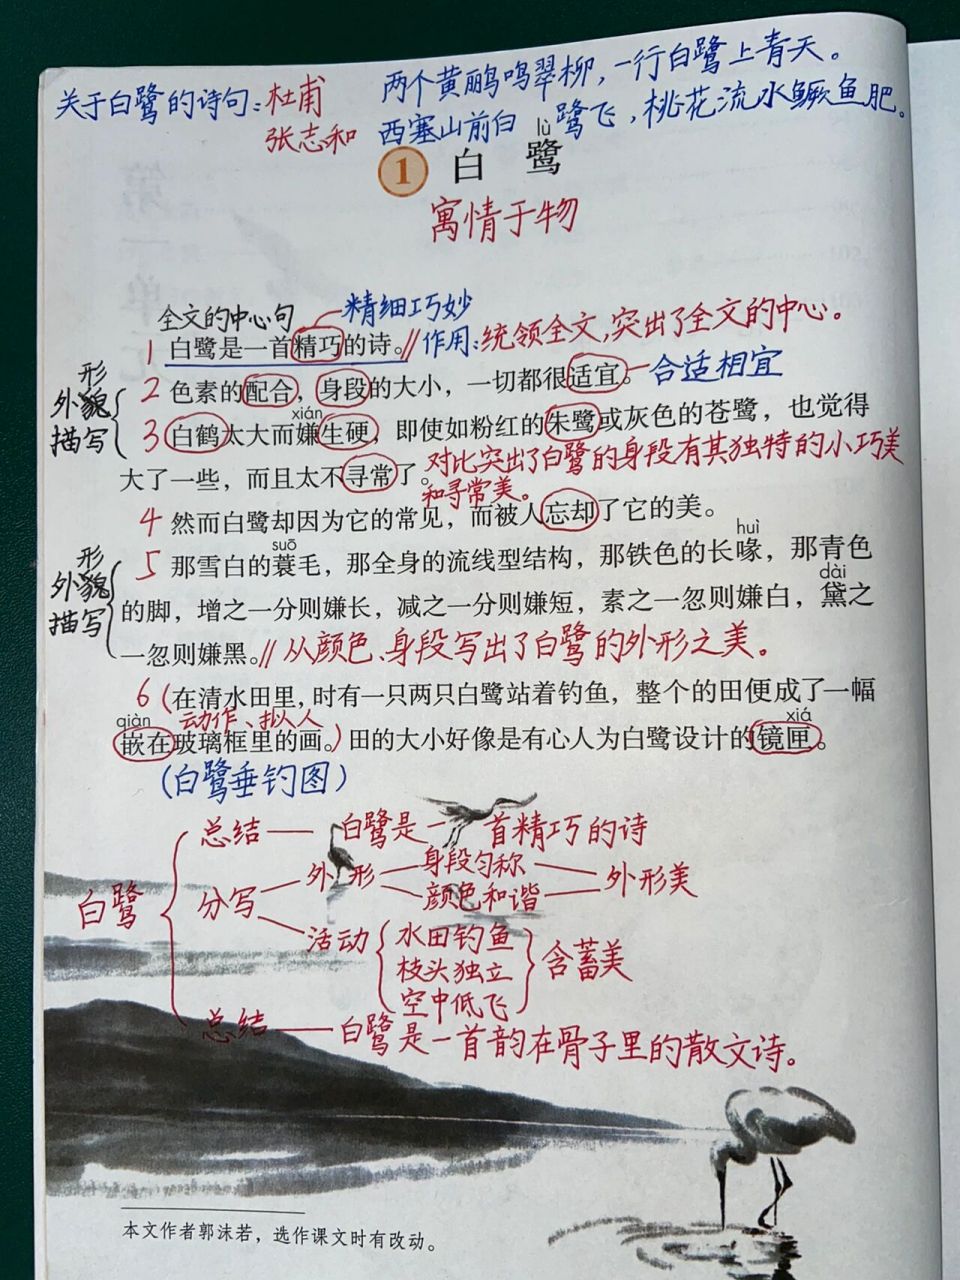 关于白鹭的诗句：杜甫 两个黄鹂鸣翠柳，一行白鹭上青天。
张志和 西塞山前白鹭飞，桃花流水鳜鱼肥。
lù
1 白鹭
寓情于物
全文的中心句 精细巧妙
1 白鹭是一首精巧的诗。//作用：统领全文，突出了全文的中心。
外形
貌
描写
2 色素的配合，身段的大小，一切都很适宜。合适相宜
xián
3 白鹤太大而嫌生硬，即使如粉红的朱鹭或灰色的苍鹭，也觉得
大了一些，而且太不寻常了。对比突出了白鹭的身段有其独特的小巧美
和寻常美。
4 然而白鹭却因为它的常见，而被人忘却了它的美。
外形
貌
描写
suō huì
5 那雪白的蓑毛，那全身的流线型结构，那铁色的长喙，那青色
dài
的脚，增之一分则嫌长，减之一分则嫌短，素之一忽则嫌白，黛之
一忽则嫌黑。//从颜色、身段写出了白鹭的外形之美。
6 （在清水田里，时有一只两只白鹭站着钓鱼，整个的田便成了一幅
qiàn 动作、拟人 xiá
嵌在玻璃框里的画。）田的大小好像是有心人为白鹭设计的镜匣。
（白鹭垂钓图）
白鹭
总结 白鹭是一首精巧的诗
分写 外形 身段匀称 颜色和谐 外形美
活动 水田钓鱼 枝头独立 空中低飞 含蓄美
总结 白鹭是一首韵在骨子里的散文诗。
本文作者郭沫若，选作课文时有改动。